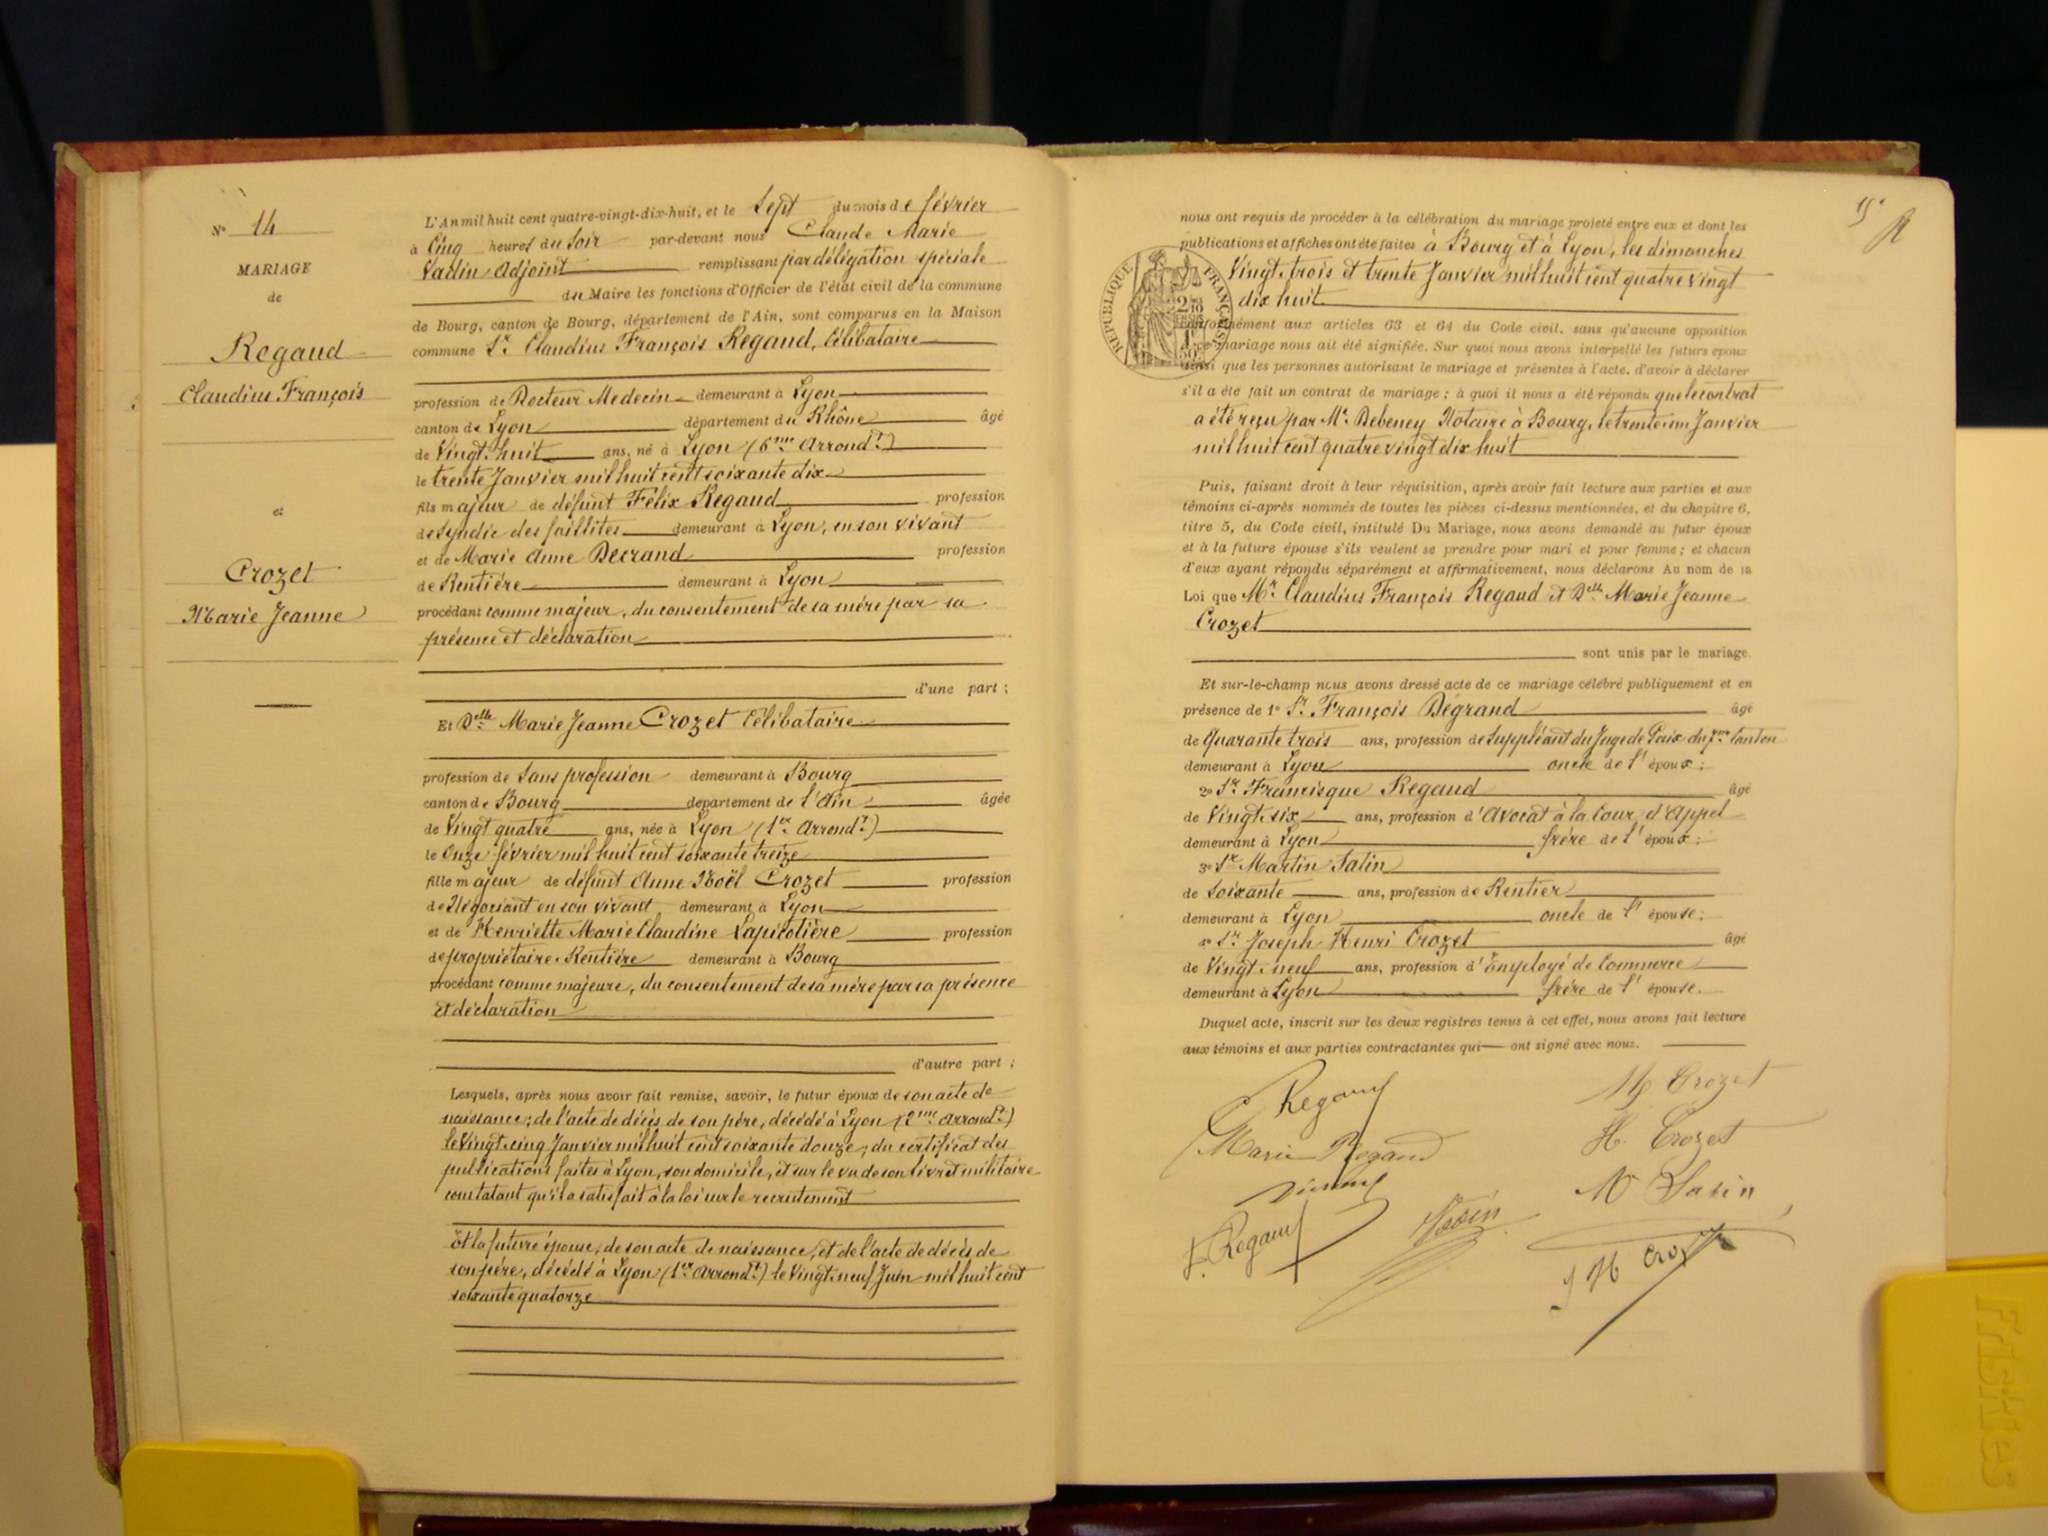 No 14
MARIAGE
de
Regaud
Claudius François
et
Crozet
Marie Jeanne
L'An mil huit cent quatre-vingt-dix-huit, et le Sept du mois de février
à Cinq heures du Soir par-devant nous Claude Marie
Adjoint remplissant par délégation spéciale
du Maire les fonctions d'Officier de l'état civil de la commune
de Bourg, canton de Bourg, département de l'Ain, sont comparus en la Maison
commune Sr. Claudius François Regaud, Célibataire
profession de Docteur Medecin demeurant à Lyon
canton de Lyon département du Rhône âgé
de Vingt-huit ans, né à Lyon (6me Arrondt)
le trente Janvier mil huit cent soixante dix
fils majeur de défunt Félix Regaud profession
de Syndic des faillites demeurant à Lyon, en son vivant
et de Marie Anne Decrand profession
de Rentière demeurant à Lyon
procédant comme majeur, du consentement de sa mère par sa
présence et déclaration
d'une part ;
Et Delle Marie Jeanne Crozet Célibataire
profession de Sans profession demeurant à Bourg
canton de Bourg département de l'Ain âgée
de Vingt quatre ans, née à Lyon (1er Arrondt)
le Onze février mil huit cent soixante treize
fille majeur de défunt Anne Noël Crozet profession
de Négociant en son vivant demeurant à Lyon
et de Henriette Marie Claudine Lapicotière profession
de propriétaire-Rentière demeurant à Bourg
procédant comme majeure, du consentement de sa mère par sa présence
et déclaration
d'autre part ;
Lesquels, après nous avoir fait remise, savoir, le futur époux de son acte de
naissance; de l'acte de décès de son père, décédé à Lyon (2me Arrondt)
le Vingt-cinq Janvier mil huit cent soixante douze, du certificat des
publications faites à Lyon, son domicile, et sur le vu de son livret militaire
constatant qu'il a satisfait à la loi sur le recrutement
Et la future épouse, de son acte de naissance, et de l'acte de décès de
son père, décédé à Lyon (1er Arrondt) le Vingt-neuf Juin mil huit cent
soixante quatorze
15
nous ont requis de procéder à la célébration du mariage projeté entre eux et dont les
publications et affiches ont été faites à Bourg et à Lyon, les dimanches
Vingt-trois et trente Janvier mil huit cent quatre vingt
dix huit
RÉPUBLIQUE FRANÇAISE
conformément aux articles 63 et 64 du Code civil, sans qu'aucune opposition
à ce mariage nous ait été signifiée. Sur quoi nous avons interpellé les futurs époux
ainsi que les personnes autorisant le mariage et présentes à l'acte, d'avoir à déclarer
s'il a été fait un contrat de mariage ; à quoi il nous a été répondu que le contrat
a été reçu par Me. Debeney Notaire à Bourg, le trente-un Janvier
mil huit cent quatre vingt dix huit
Puis, faisant droit à leur réquisition, après avoir fait lecture aux parties et aux
témoins ci-après nommés de toutes les pièces ci-dessus mentionnées, et du chapitre 6,
titre 5, du Code civil, intitulé Du Mariage, nous avons demandé au futur époux
et à la future épouse s'ils veulent se prendre pour mari et pour femme ; et chacun
d'eux ayant répondu séparément et affirmativement, nous déclarons Au nom de la
Loi que Mr. Claudius François Regaud et Delle Marie Jeanne
Crozet
sont unis par le mariage.
Et sur-le-champ nous avons dressé acte de ce mariage célébré publiquement et en
présence de 1o Sr. François Dégrand âgé
de Quarante trois ans, profession de Suppléant du Juge de Paix du Canton
demeurant à Lyon oncle de l'époux ;
2o Sr. Francisque Regaud âgé
de Vingt-six ans, profession d'Avocat à la Cour d'Appel
demeurant à Lyon frère de l'époux ;
3o Sr. Martin Satin
de Soixante ans, profession de Rentier
demeurant à Lyon oncle de l'épouse ;
4o Sr. Joseph-Henri Crozet âgé
de Vingt-neuf ans, profession d'Employé de Commerce
demeurant à Lyon frère de l'épouse.
Duquel acte, inscrit sur les deux registres tenus à cet effet, nous avons fait lecture
aux témoins et aux parties contractantes qui ont signé avec nous.
C Regaud
MJ Crozet
Marie Regaud
H. Crozet
M Satin
F. Regaud
J H Crozet